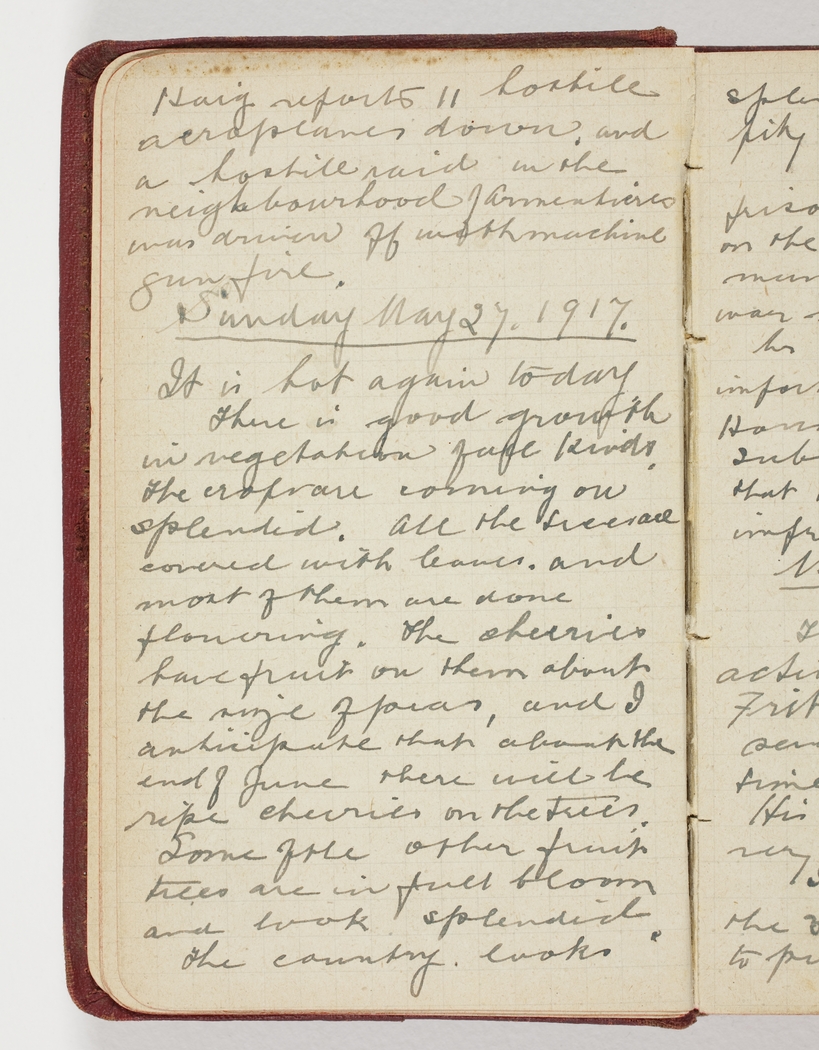 Haig reports 11 hostile
aeroplanes down, and
a hostile raid in the
neighbourhood of Armentieres
was driven off with machine
gun fire.
Sunday May 27. 1917.
It is hot again today
There is good growth
in vegetation of all kinds.
The crops are coming on
splendid. All the trees are
covered with leaves. and
most of them are done
flowering. The cherries
have fruit on them about
the size of peas, and I
anticipate that about the
end of June there will be
ripe cherries on the trees.
Some of the other fruit
trees are in full bloom
and look splendid.
The country. looks
on the
that
the
to